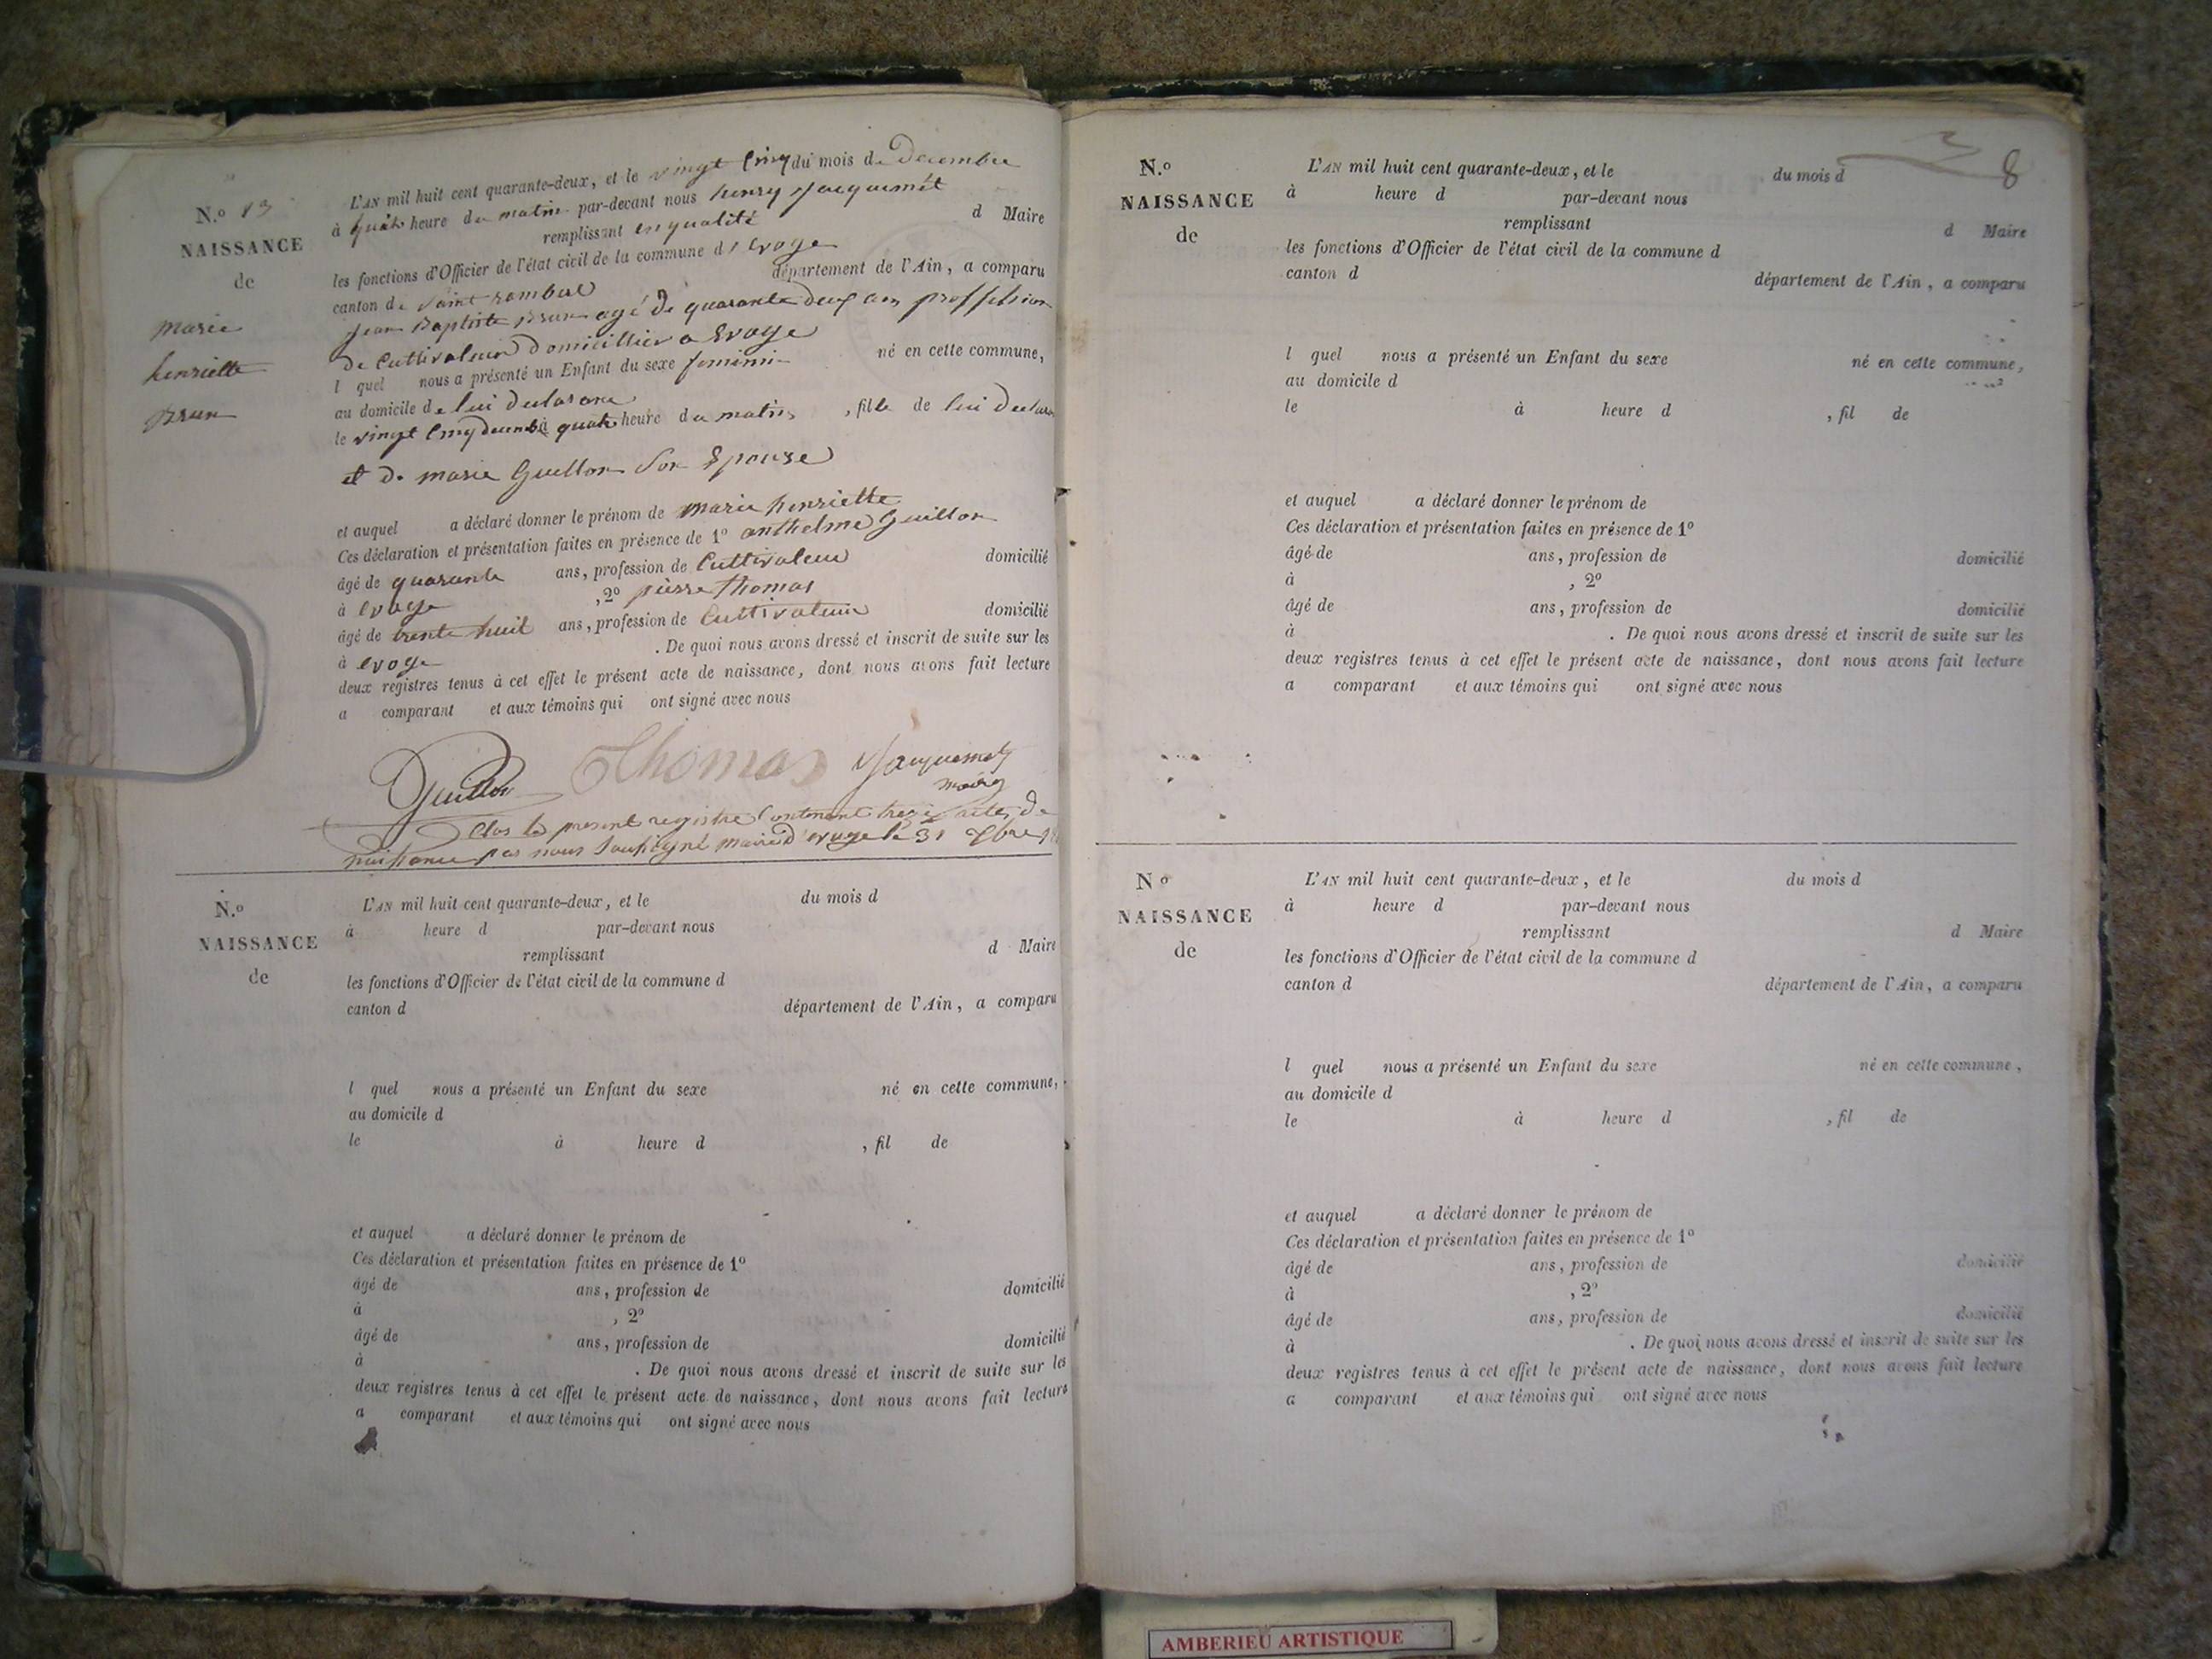 N.o 13
NAISSANCE
de
marie
henriette
Brun
L'AN mil huit cent quarante-deux, et le vingt cinq du mois de Decembre
à quatre heure du matin par-devant nous henry Jacquemet
remplissant en qualité d Maire
les fonctions d'Officier de l'état civil de la commune d'Evoge
canton de Saint rambert département de l'Ain, a comparu
Jean Baptiste Brun agé de quarante deux ans proffession
de Cultivateur domicillier a Evoge
l quel nous a présenté un Enfant du sexe feminin né en cette commune,
au domicile de lui declarant
le vingt cinq decembre à quatre heure du matin, fille de lui declarant
et de marie Guillon Son Epouse
et auquel a déclaré donner le prénom de marie henriette
Ces déclaration et présentation faites en présence de 1o anthelme Guillon
âgé de quarante ans, profession de Cultivateur domicilié
à Evoge , 2o pierre thomas
âgé de trente huit ans, profession de Cultivateur domicilié
à Evoge . De quoi nous avons dressé et inscrit de suite sur les
deux registres tenus à cet effet le présent acte de naissance, dont nous avons fait lecture
a comparant et aux témoins qui ont signé avec nous
Guillon Thomas Jacquemet
maire
Clos le present registre Contenant treize actes de
naissance par nous Soussigné maire d'evoge le 31 Xbre
N.o
NAISSANCE
de
L'AN mil huit cent quarante-deux, et le du mois d
à heure d par-devant nous
remplissant d Maire
les fonctions d'Officier de l'état civil de la commune d
canton d département de l'Ain, a comparu
l quel nous a présenté un Enfant du sexe né en cette commune,
au domicile d
le à heure d , fil de
et auquel a déclaré donner le prénom de
Ces déclaration et présentation faites en présence de 1o
âgé de ans, profession de domicilié
à , 2o
âgé de ans, profession de domicilié
à . De quoi nous avons dressé et inscrit de suite sur les
deux registres tenus à cet effet le présent acte de naissance, dont nous avons fait lecture
a comparant et aux témoins qui ont signé avec nous
8
N.o
NAISSANCE
de
L'AN mil huit cent quarante-deux, et le du mois d
à heure d par-devant nous
remplissant d Maire
les fonctions d'Officier de l'état civil de la commune d
canton d département de l'Ain, a comparu
l quel nous a présenté un Enfant du sexe né en cette commune,
au domicile d
le à heure d , fil de
et auquel a déclaré donner le prénom de
Ces déclaration et présentation faites en présence de 1o
âgé de ans, profession de domicilié
à , 2o
âgé de ans, profession de domicilié
à . De quoi nous avons dressé et inscrit de suite sur les
deux registres tenus à cet effet le présent acte de naissance, dont nous avons fait lecture
a comparant et aux témoins qui ont signé avec nous
No
NAISSANCE
de
L'AN mil huit cent quarante-deux, et le du mois d
à heure d par-devant nous
remplissant d Maire
les fonctions d'Officier de l'état civil de la commune d
canton d département de l'Ain, a comparu
l quel nous a présenté un Enfant du sexe né en cette commune,
au domicile d
le à heure d , fil de
et auquel a déclaré donner le prénom de
Ces déclaration et présentation faites en présence de 1o
âgé de ans, profession de domicilié
à , 2o
âgé de ans, profession de domicilié
à . De quoi nous avons dressé et inscrit de suite sur les
deux registres tenus à cet effet le présent acte de naissance, dont nous avons fait lecture
a comparant et aux témoins qui ont signé avec nous
AMBERIEU ARTISTIQUE